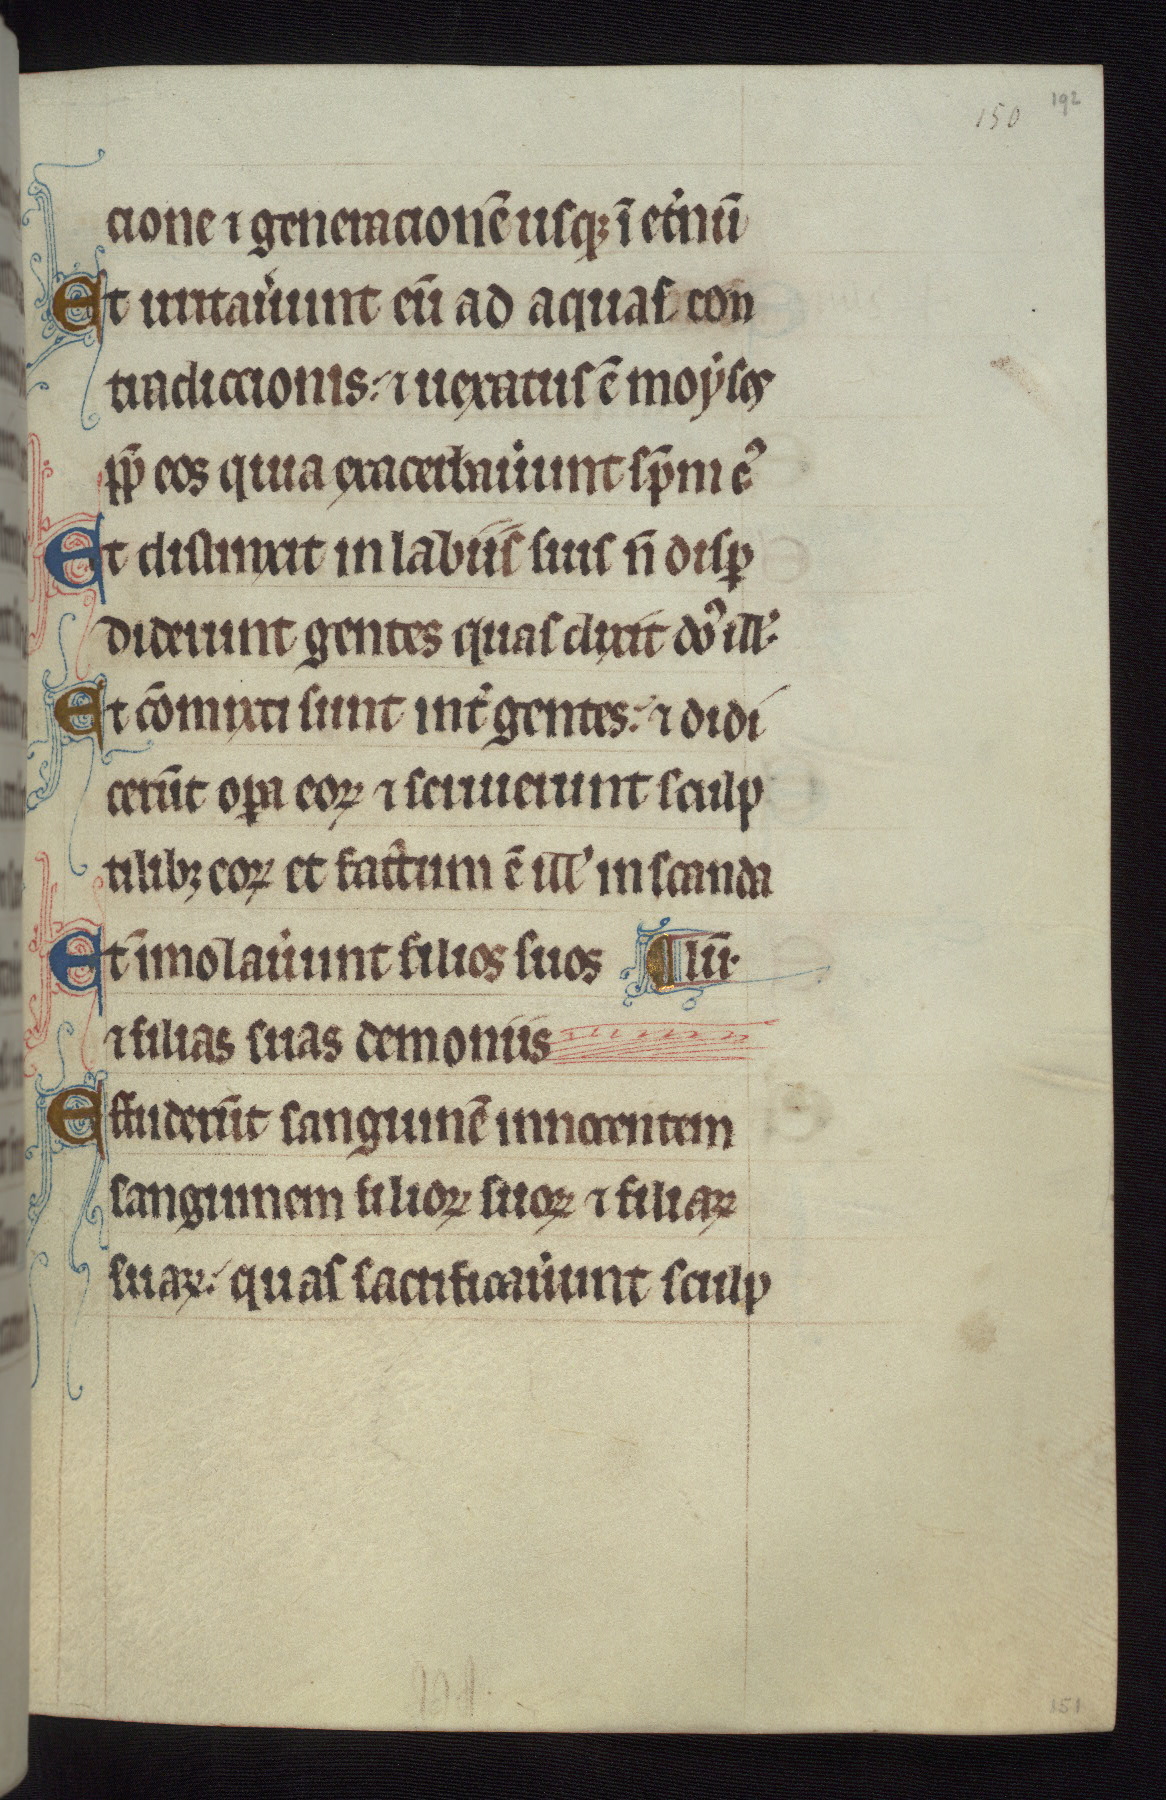 150
192
cione ⁊ generacionē usq; ī et̾nū
Et irritav̾unt eū ad aquas con
tradiccionis: ⁊ uexatus ē moyses
pp̄ eos quia exacerbav̾unt sp̄m ei᾽
Et distinxit in labiis suis n̄ disꝑ
diderunt gentes quas dixit do᾽ ill᾽
Et cōmixti sunt int̾ gentes: ⁊ didi
cerūt oꝑa eoꝝ ⁊ servierunt sculp
tilibꝫ eoꝝ et factum ē ill᾽ in scanda
Et imolav̾unt filios suos ¶ lū·
⁊ filias suas demoniis
Effuderūt sanguinē innocentem
sanguinem filioꝝ suoꝝ ⁊ filiaꝝ
suaꝝ: quas sacrificav̾unt sculp
151